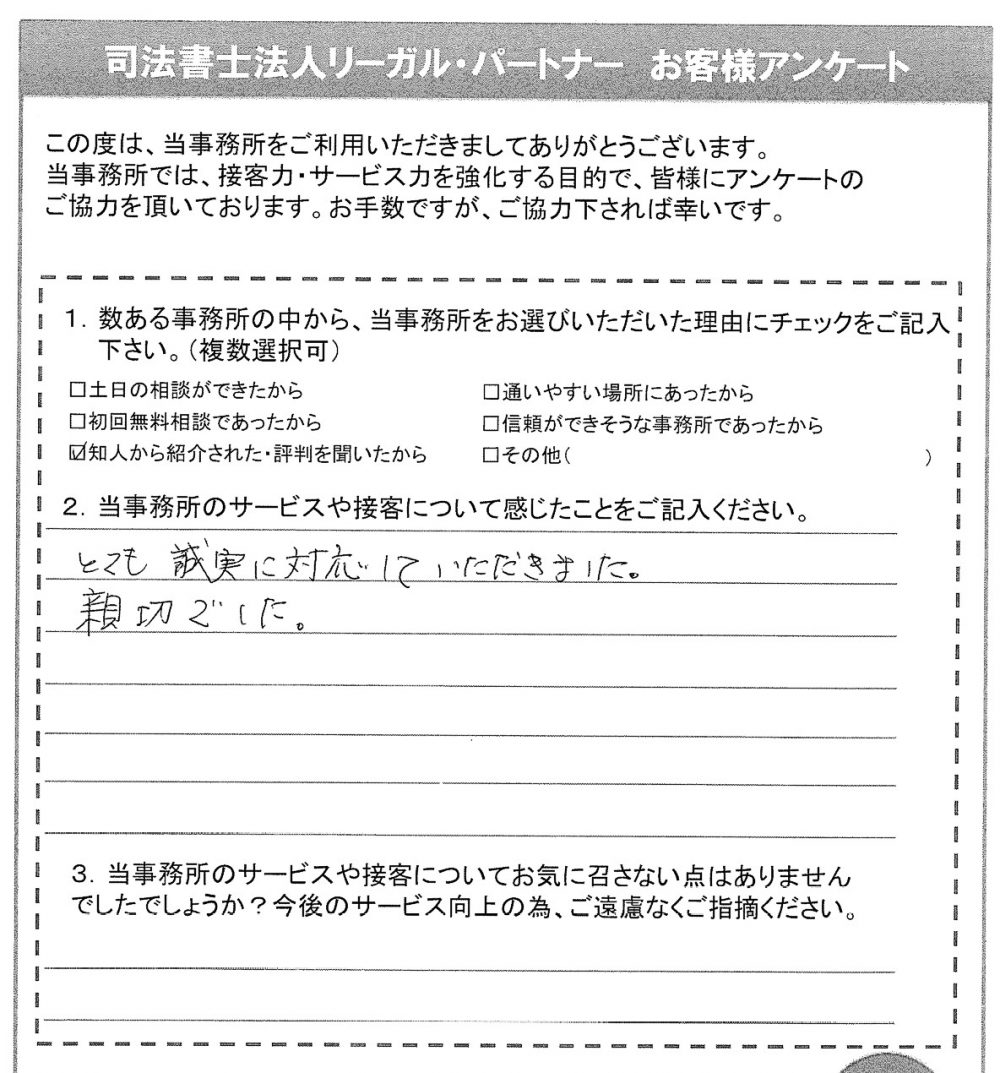 司法書士法人リーガル・パートナー　お客様アンケート
この度は、当事務所をご利用いただきましてありがとうございます。
当事務所では、接客力・サービス力を強化する目的で、皆様にアンケートの
ご協力を頂いております。お手数ですが、ご協力下されば幸いです。
1. 数ある事務所の中から、当事務所をお選びいただいた理由にチェックをご記入
下さい。（複数選択可）
□土日の相談ができたから　□通いやすい場所にあったから
□初回無料相談であったから　□信頼ができそうな事務所であったから
☑知人から紹介された・評判を聞いたから　□その他(　)
2. 当事務所のサービスや接客について感じたことをご記入ください。
とても誠実に対応していただきました。
親切でした。
3. 当事務所のサービスや接客についてお気に召さない点はありません
でしたでしょうか？今後のサービス向上の為、ご遠慮なくご指摘ください。